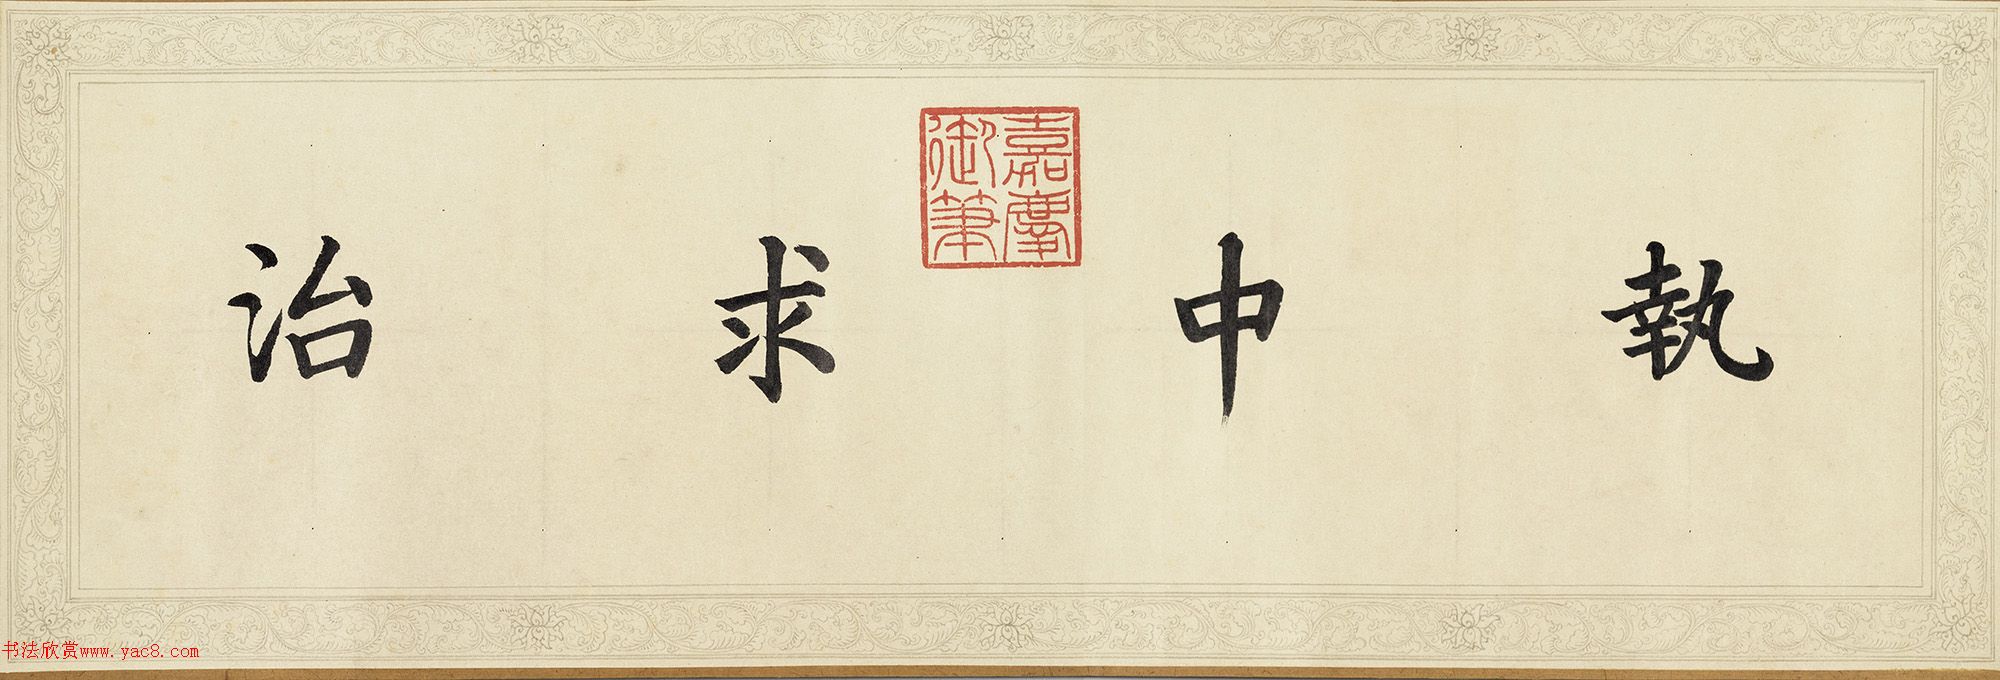 執中求治
嘉慶
御筆
书法欣赏www.yac8.com